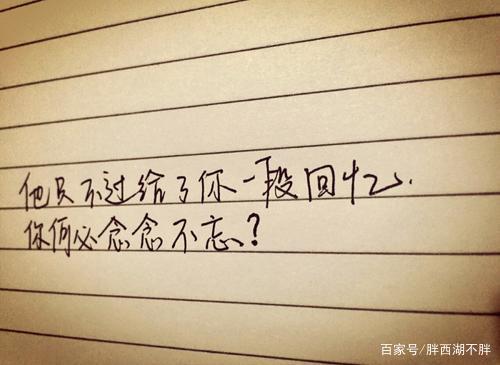 他只不过给了你一段回忆.
你何必念念不忘?
百家号/胖西湖不胖